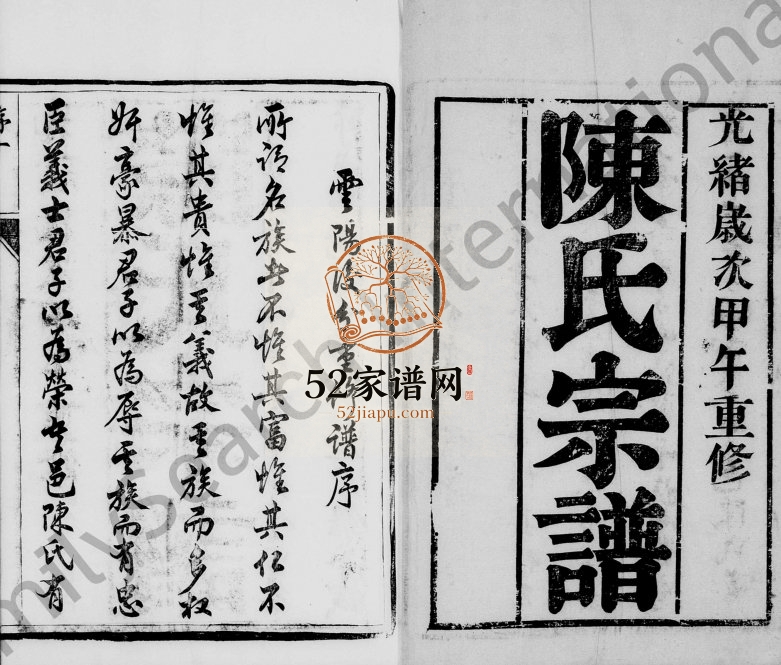 光緒歲次甲午重修
陳氏宗譜
雲陽 重 譜序
所謂名族者不惟其富惟其仁不
惟其貴惟其義故其族而多奴
奸豪暴君子以為辱其族而有忠
臣義士君子以為榮吾邑陳氏有
序一
52家谱网
52jiapu.com
milySearch International